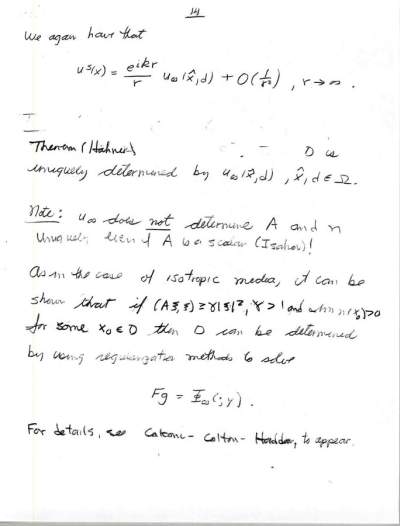 14
We again have that
u^s(x) = e^{ikr}/r u_∞(x̂,d) + O(1/r²) , r→∞ .
Theorem (Hahner) D is
uniquely determined by u_∞(x̂,d) , x̂,d ∈ Ω.
Note: u_∞ does not determine A and n
uniquely even if A is a scalar (Isakov)!
As in the case of isotropic media, it can be
shown that if (Aξ,ξ) ≥ γ|ξ|², γ>1 and n(x₀)>0
for some x₀ ∈ D then D can be determined
by using regularization methods to solve
Fg = Φ_∞(·,y) .
For details, see Cakoni - Colton - Haddar, to appear.